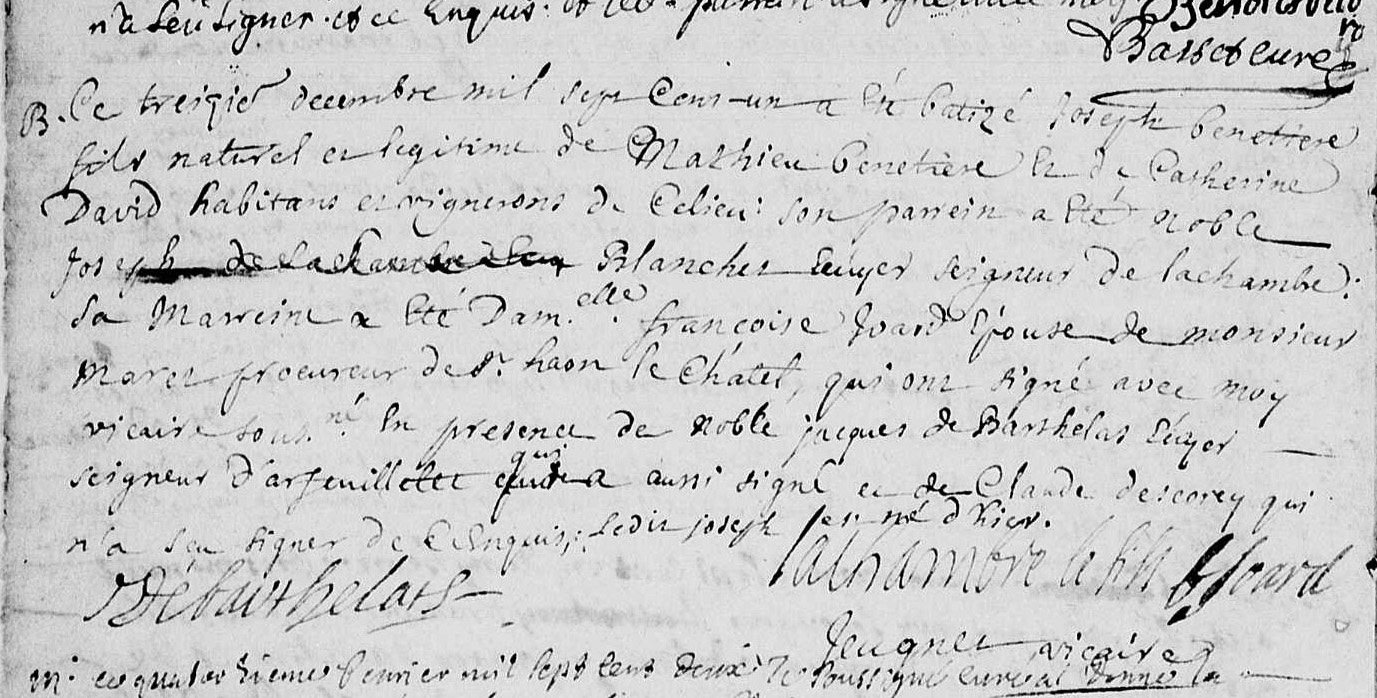 n'a sçeu signer. de ce Enquis. et led. parrein a signé avec moy
Basset curé
B. Ce treizié decembre mil sept Cent-un a Eté batizé Joseph benettere
fils naturel et legitime de Mathieu benetiere Et de Catherine
David habitans et vignerons de Celieu: son parrein a Eté Noble
Joseph de la chambre Blanchet Ecuyer seigneur de lachambre:
sa Marreine a Eté Dam.elle françoise Joard Epouse de monsieur
Maret procureur de st. haon le Châtel, qui ont signé avec Moy
vicaire sous.né En presence de Noble jacques de Barthélas Ecuyer
seigneur d'arfeuillette qui a aussi signé et de Claude descorey qui
n'a sçeu signer de C Enquis; Ledit joseph est né d'hier.
Debarthelats lachambre le fils f Joard
Jeugnet vicaire
m. ce quatorzieme fevrier mil sept cent deux Je soussigné